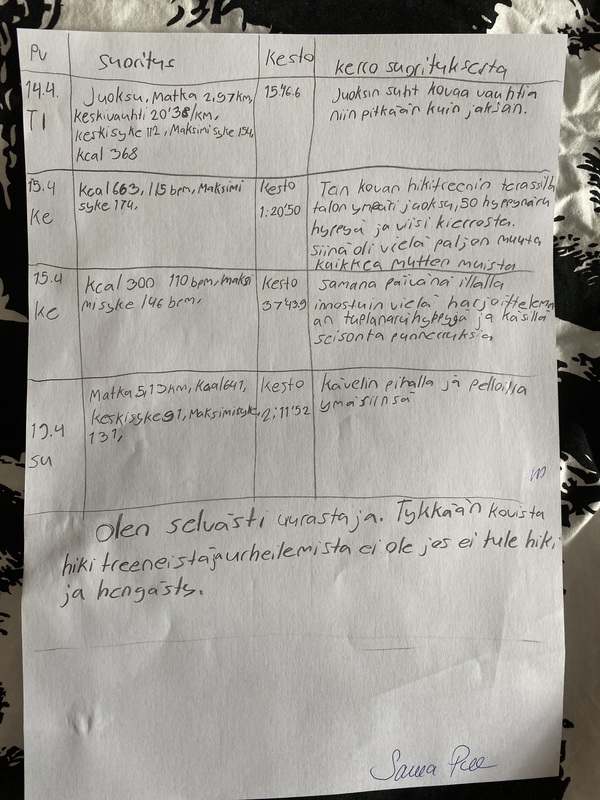 Pv suoritus Kesto kerro suorituksesta
14.4. TI
Juoksu, Matka 2,97km,
keskivauhti 20'38/km,
keskisyke 112, Maksimi syke 154,
kcal 368
15.46.6
Juoksin suht kovaa vauhtia
niin pitkään kuin jaksan.
15.4 ke
kcal 663, 115 bpm, Maksimi
syke 174.
Kesto
1:20'50
Tein kovan hikitreenin terassilla
talon ympäri juoksu, 50 hyppynaru
hyppyä ja viisi kierrosta.
siinä oli vielä paljon muuta
kaikkea mutten muista
15.4 ke
kcal 300 110 bpm, maksi
misyke 146 bpm,
Kesto
37'43.9
samana päivänä illalla
innostuin vielä harjoittelem
an tuplanaruhyppyä ja käsillä
seisonta punnerruksia,
19.4 su
Matka 5,13km, Kcal 641,
keskisyke 91, Maksimisyke,
131,
Kesto
2:11'52
Kävelin pihalla ja pelloilla
ymäsiinsä
Olen selvästi uurastaja. Tykkään kovista
hiki treeneistä ja urheilemista ei ole jos ei tule hiki
ja hengästy.